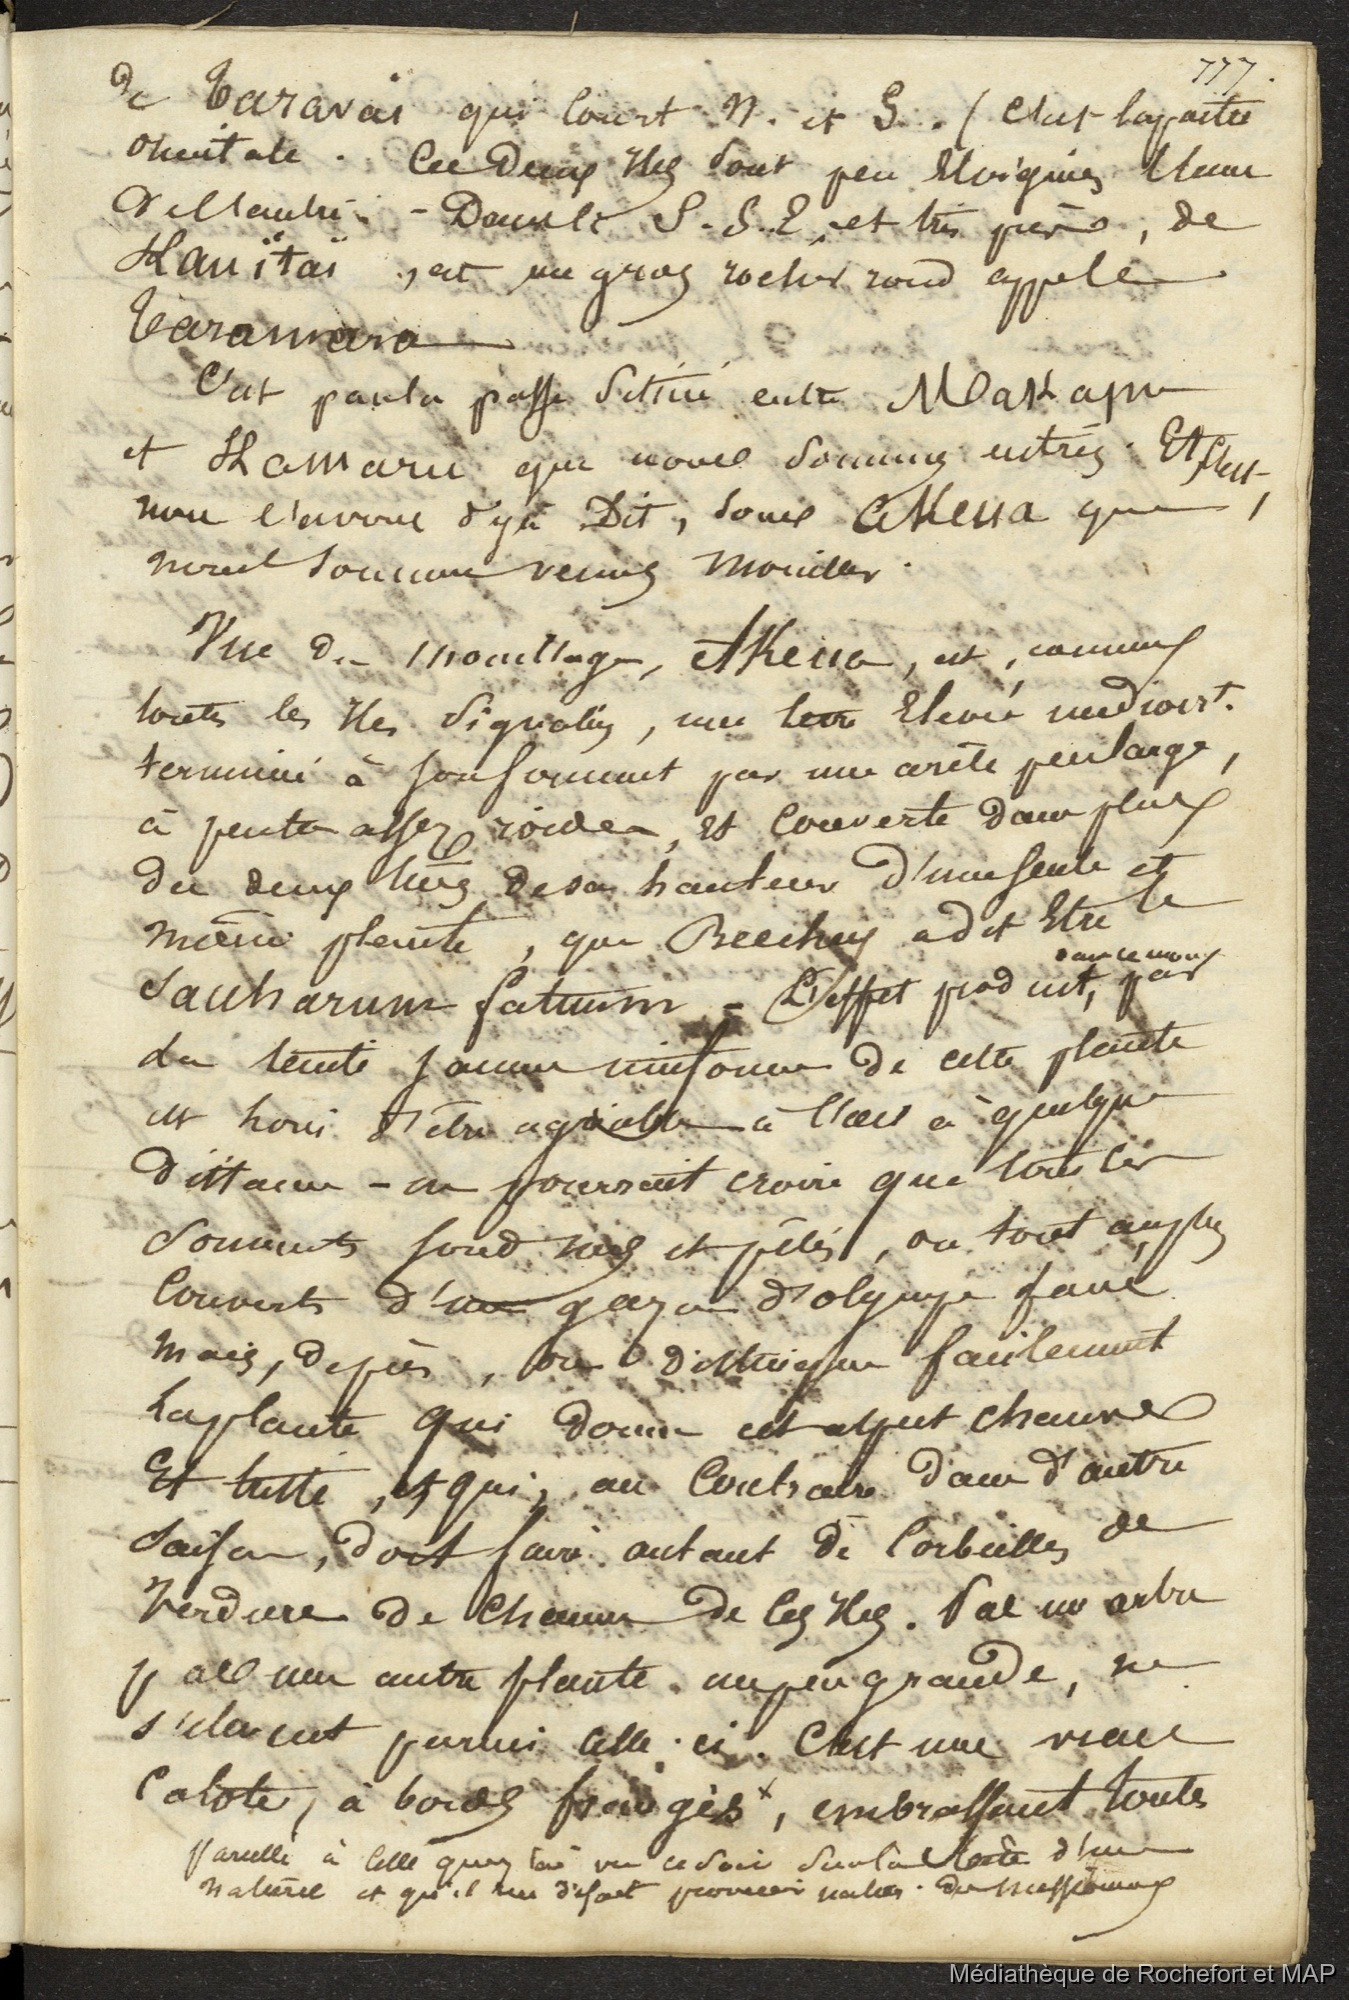 777.
de Taravai qui court N. et S. ( C'est la partie
orientale. Ces deux Iles sont peu éloignées l'une
de l'autre - Dans le S.S.E. et très près, de
Kamitaï, est un gros rocher rond appelé
Taramara
C'est par la passe située entre Makapu
et Kamaru que nous sommes entrés. Et c'est,
nous l'avons déjà dit, sous Akena que
nous sommes venus mouiller.
Vue du mouillage, Akena, est, comme
toutes les Iles signalées, une terre élevée médiocrt.
terminée à son sommet par une arête peu large,
à pentes assez roides, et couverte dans plus
des deux tiers de sa hauteur d'une seule et
même plante, que Beechey a dit être le
Saccharum fatuum - L'effet produit, par
dans ce mois
la teinte jaune uniforme de cette plante
est loin d'être agréable à l'œil à quelque
distance - on pourrait croire que tous les
sommets sont nus et pelés, ou tout au plus
couverts d'un gazon fané
mais, de près, on distingue facilement
la plante qui donne cet aspect chauve
et triste, et qui, au contraire dans d'autres
saisons, doit faire autant de corbeilles de
verdure de chacune de ces Iles. Pas un arbre
pas une autre plante un peu grande, ne
s'élançent parmi celle-ci. C'est une vraie
calotte, à bords frangés x, embrassant toutes
pareille à celle que j'ai vu ce soir sur la tête d'un
naturel et qu'il me disait provenir des missionnaires
Médiathèque de Rochefort et MAP